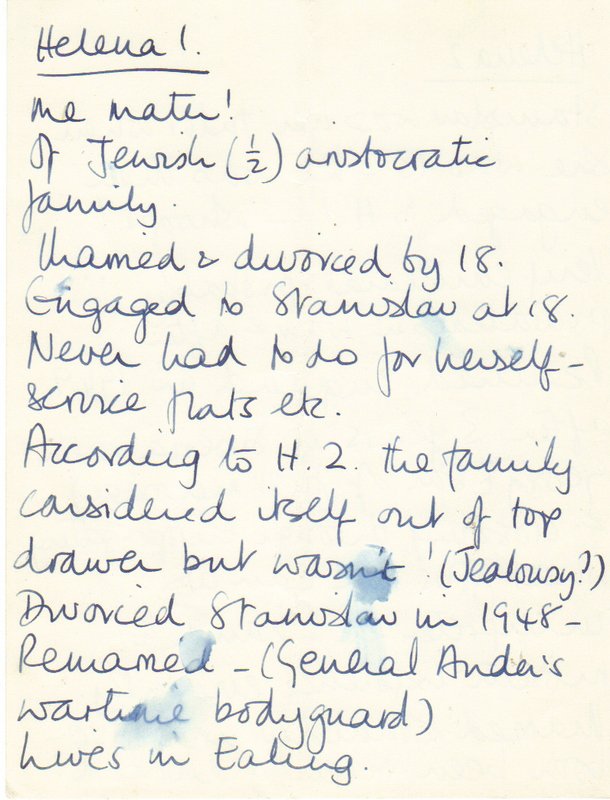 Helena 1.
me mater!
Of Jewish (½) aristocratic
family.
Married & divorced by 18.
Engaged to Stanislav at 18.
Never had to do for herself -
service flats etc.
According to H. 2. the family
considered itself out of top
drawer but wasn't! (Jealousy?)
Divorced Stanislav in 1948 -
Remarried - (General Ander's
wartime bodyguard)
Lives in Ealing.